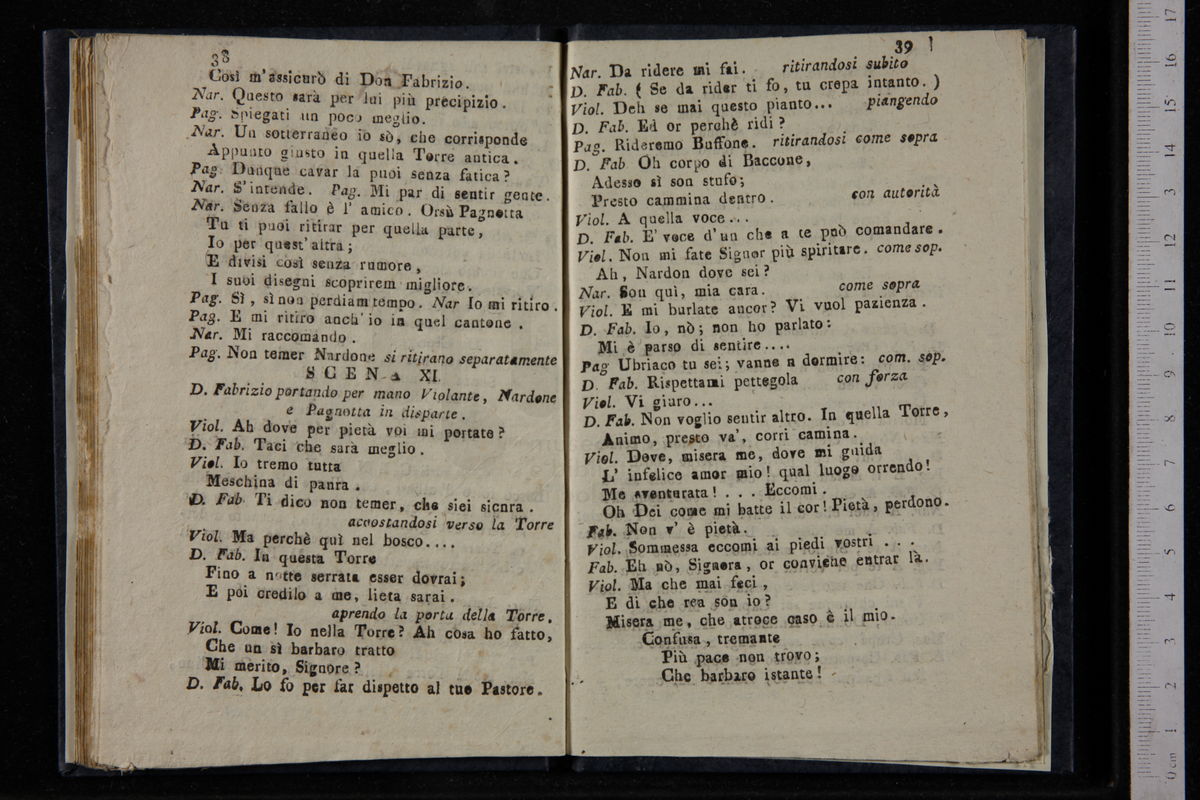 38
Così m'assicurò di Don Fabrizio.
Nar. Questo sarà per lui più precipizio.
Pag. Spiegati un poco meglio.
Nar. Un sotterraneo io sò, che corrisponde
Appunto giusto in quella Torre antica.
Pag. Dunque cavar la puoi senza fatica?
Nar. S'intende. Pag. Mi par di sentir gente.
Nar. Senza fallo è l' amico. Orsù Pagnotta
Tu ti puoi ritirar per quella parte,
Io per quest'altra;
E divisi così senza rumore,
I suoi disegni scoprirem migliore.
Pag. Sì, sì non perdiam tempo. Nar Io mi ritiro.
Pag. E mi ritiro anch'io in quel cantone.
Nar. Mi raccomando.
Pag. Non temer Nardone si ritirano separatamente
SCENA XI.
D. Fabrizio portando per mano Violante, Nardone
e Pagnotta in disparte.
Viol. Ah dove per pietà voi mi portate?
D. Fab. Taci che sarà meglio.
Viol. Io tremo tutta
Meschina di panra.
D. Fab. Ti dico non temer, che siei sicnra.
accostandosi verso la Torre
Viol. Ma perchè quì nel bosco....
D. Fab. In questa Torre
Fino a notte serrata esser dovrai;
E poi credilo a me, lieta sarai.
aprendo la porta della Torre.
Viol. Come! Io nella Torre? Ah cosa ho fatto,
Che un sì barbaro tratto
Mi merito, Signore?
D. Fab. Lo fo per far dispetto al tuo Pastore.
39
Nar. Da ridere mi fai. ritirandosi subito
D. Fab. ( Se da rider ti fo, tu crepa intanto. )
Viol. Deh se mai questo pianto... piangendo
D. Fab. Ed or perchè ridi?
Pag. Rideremo Buffone. ritirandosi come sopra
D. Fab Oh corpo di Baccone,
Adesso sì son stufo;
Presto cammina dentro. con autorità
Viol. A quella voce...
D. Fab. E' voce d'un che a te può comandare.
Viol. Non mi fate Signor più spiritare. come sop.
Ah, Nardon dove sei?
Nar. Son quì, mia cara. come sopra
Viol. E mi burlate ancor? Vi vuol pazienza.
D. Fab. Io, nò; non ho parlato:
Mi è parso di sentire....
Pag Ubriaco tu sei; vanne a dormire: com. sop.
D. Fab. Rispettami pettegola con forza
Viol. Vi giuro...
D. Fab. Non voglio sentir altro. In quella Torre,
Animo, presto va', corri camina.
Viol. Dove, misera me, dove mi guida
L' infelice amor mio! qual luogo orrendo!
Me sventurata! . . . Eccomi.
Oh Dei come mi batte il cor! Pietà, perdono.
Fab. Non v' è pietà.
Viol. Sommessa eccomi ai piedi vostri . . .
Fab. Eh nò, Signora, or conviene entrar là.
Viol. Ma che mai feci,
E di che rea son io?
Misera me, che atroce caso è il mio.
Confusa, tremante
Più pace non trovo;
Che barbaro istante!
17
16
15
14
13
12
11
10
9
8
7
6
5
4
3
2
1
0 cm